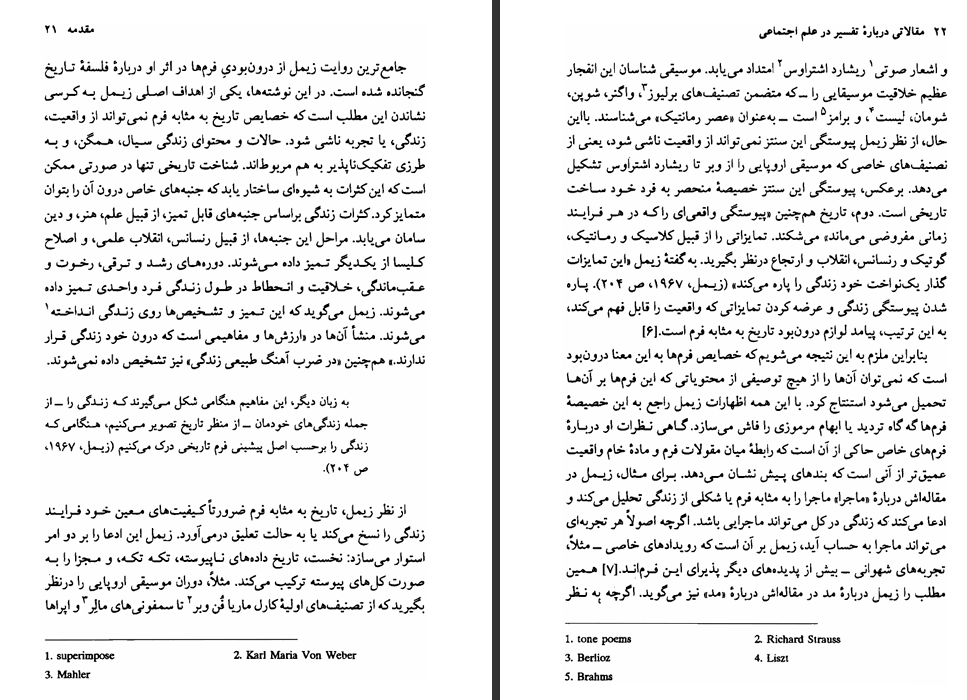 مقدمه ۲۱
جامع‌ترین روایت زیمل از درون‌بودیِ فرم‌ها در اثر او دربارهٔ فلسفهٔ تاریخ
گنجانده شده است. در این نوشته‌ها، یکی از اهداف اصلی زیمل به کرسی
نشاندن این مطلب است که خصایص تاریخ به مثابه فرم نمی‌تواند از واقعیت،
زندگی، یا تجربه ناشی شود. حالات و محتوای زندگی سیال، همگن، و به
طرزی تفکیک‌ناپذیر به هم مربوط‌اند. شناخت تاریخی تنها در صورتی ممکن
است که این کثرات به شیوه‌ای ساختار یابد که جنبه‌های خاص درون آن را بتوان
متمایز کرد. کثرات زندگی براساس جنبه‌های قابل تمیز، از قبیل علم، هنر، و دین
سامان می‌یابد. مراحل این جنبه‌ها، از قبیل رنسانس، انقلاب علمی، و اصلاح
کلیسا از یکدیگر تمیز داده می‌شوند. دوره‌های رشد و ترقی، رخوت و
عقب‌ماندگی، خلاقیت و انحطاط در طول زندگی فرد واحدی تمیز داده
می‌شوند. زیمل می‌گوید که این تمیز و تشخیص‌ها روی زندگی انداخته۱
می‌شوند. منشأ آن‌ها در «ارزش‌ها و مفاهیمی است که درون خود زندگی قرار
ندارند.» هم‌چنین «در ضرب آهنگ طبیعی زندگی» نیز تشخیص داده نمی‌شوند.
به زبان دیگر، این مفاهیم هنگامی شکل می‌گیرند که زندگی را ــ از
جمله زندگی‌های خودمان ــ از منظر تاریخ تصویر می‌کنیم، هنگامی که
زندگی را برحسب اصل پیشینی فرم تاریخی درک می‌کنیم (زیمل، ۱۹۶۷،
ص ۲۰۴).
از نظر زیمل، تاریخ به مثابه فرم ضرورتاً کیفیت‌های معین خود فرایند
زندگی را نسخ می‌کند یا به حالت تعلیق درمی‌آورد. زیمل این ادعا را بر دو امر
استوار می‌سازد: نخست، تاریخ داده‌های ناپیوسته، تکه تکه، و مجزا را به
صورت کل‌های پیوسته ترکیب می‌کند. مثلاً، دوران موسیقی اروپایی را درنظر
بگیرید که از تصنیف‌های اولیهٔ کارل ماریا فُن وبر۲ تا سمفونی‌های مالِر۳ و اپراها
1. superimpose 2. Karl Maria Von Weber
3. Mahler
۲۲ مقالاتی دربارهٔ تفسیر در علم اجتماعی
و اشعار صوتی۱ ریشارد اشتراوس۲ امتداد می‌یابد. موسیقی شناسان این انفجار
عظیم خلاقیت موسیقایی را ــ که متضمن تصنیف‌های برلیوز۳، واگنر، شوپن،
شومان، لیست۴، و برامز۵ است ــ به‌عنوان «عصر رمانتیک» می‌شناسند. بااین
حال، از نظر زیمل پیوستگی این سنتز نمی‌تواند از واقعیت ناشی شود، یعنی از
تصنیف‌های خاصی که موسیقی اروپایی را از وبر تا ریشارد اشتراوس تشکیل
می‌دهد. برعکس، پیوستگی این سنتز خصیصهٔ منحصر به فرد خود ساخت
تاریخی است. دوم، تاریخ هم‌چنین «پیوستگی واقعی‌ای را که در هر فرایند
زمانی مفروضی می‌ماند» می‌شکند. تمایزاتی را از قبیل کلاسیک و رمانتیک،
گوتیک و رنسانس، انقلاب و ارتجاع درنظر بگیرید. به‌گفتهٔ زیمل «این تمایزات
گذار یک‌نواخت خود زندگی را پاره می‌کند» (زیمل، ۱۹۶۷، ص ۲۰۴). پاره
شدن پیوستگی زندگی و عرضه کردن تمایزاتی که واقعیت را قابل فهم می‌کند،
به این ترتیب، پیامد لوازم درون‌بود تاریخ به مثابه فرم است.[۶]
بنابراین ملزم به این نتیجه می‌شویم که خصایص فرم‌ها به این معنا درون‌بود
است که نمی‌توان آن‌ها را از هیچ توصیفی از محتویاتی که این فرم‌ها بر آن‌ها
تحمیل می‌شود استنتاج کرد. با این همه اظهارات زیمل راجع به این خصیصهٔ
فرم‌ها گه گاه تردید یا ابهام مرموزی را فاش می‌سازد. گاهی نظرات او دربارهٔ
فرم‌های خاص حاکی از آن است که رابطهٔ میان مقولات فرم و مادهٔ خام واقعیت
عمیق‌تر از آنی است که بندهای پیش نشان می‌دهد. برای مثال، زیمل در
مقاله‌اش دربارهٔ «ماجرا» ماجرا را به مثابه فرم یا شکلی از زندگی تحلیل می‌کند و
ادعا می‌کند که زندگی در کل می‌تواند ماجرایی باشد. اگرچه اصولاً هر تجربه‌ای
می‌تواند ماجرا به حساب آید، زیمل بر آن است که رویدادهای خاصی ــ مثلاً،
تجربه‌های شهوانی ــ بیش از پدیده‌های دیگر پذیرای این فرم‌اند.[۷] همین
مطلب را زیمل دربارهٔ مد در مقاله‌اش دربارهٔ «مد» نیز می‌گوید. اگرچه به نظر
1. tone poems 2. Richard Strauss
3. Berlioz 4. Liszt
5. Brahms